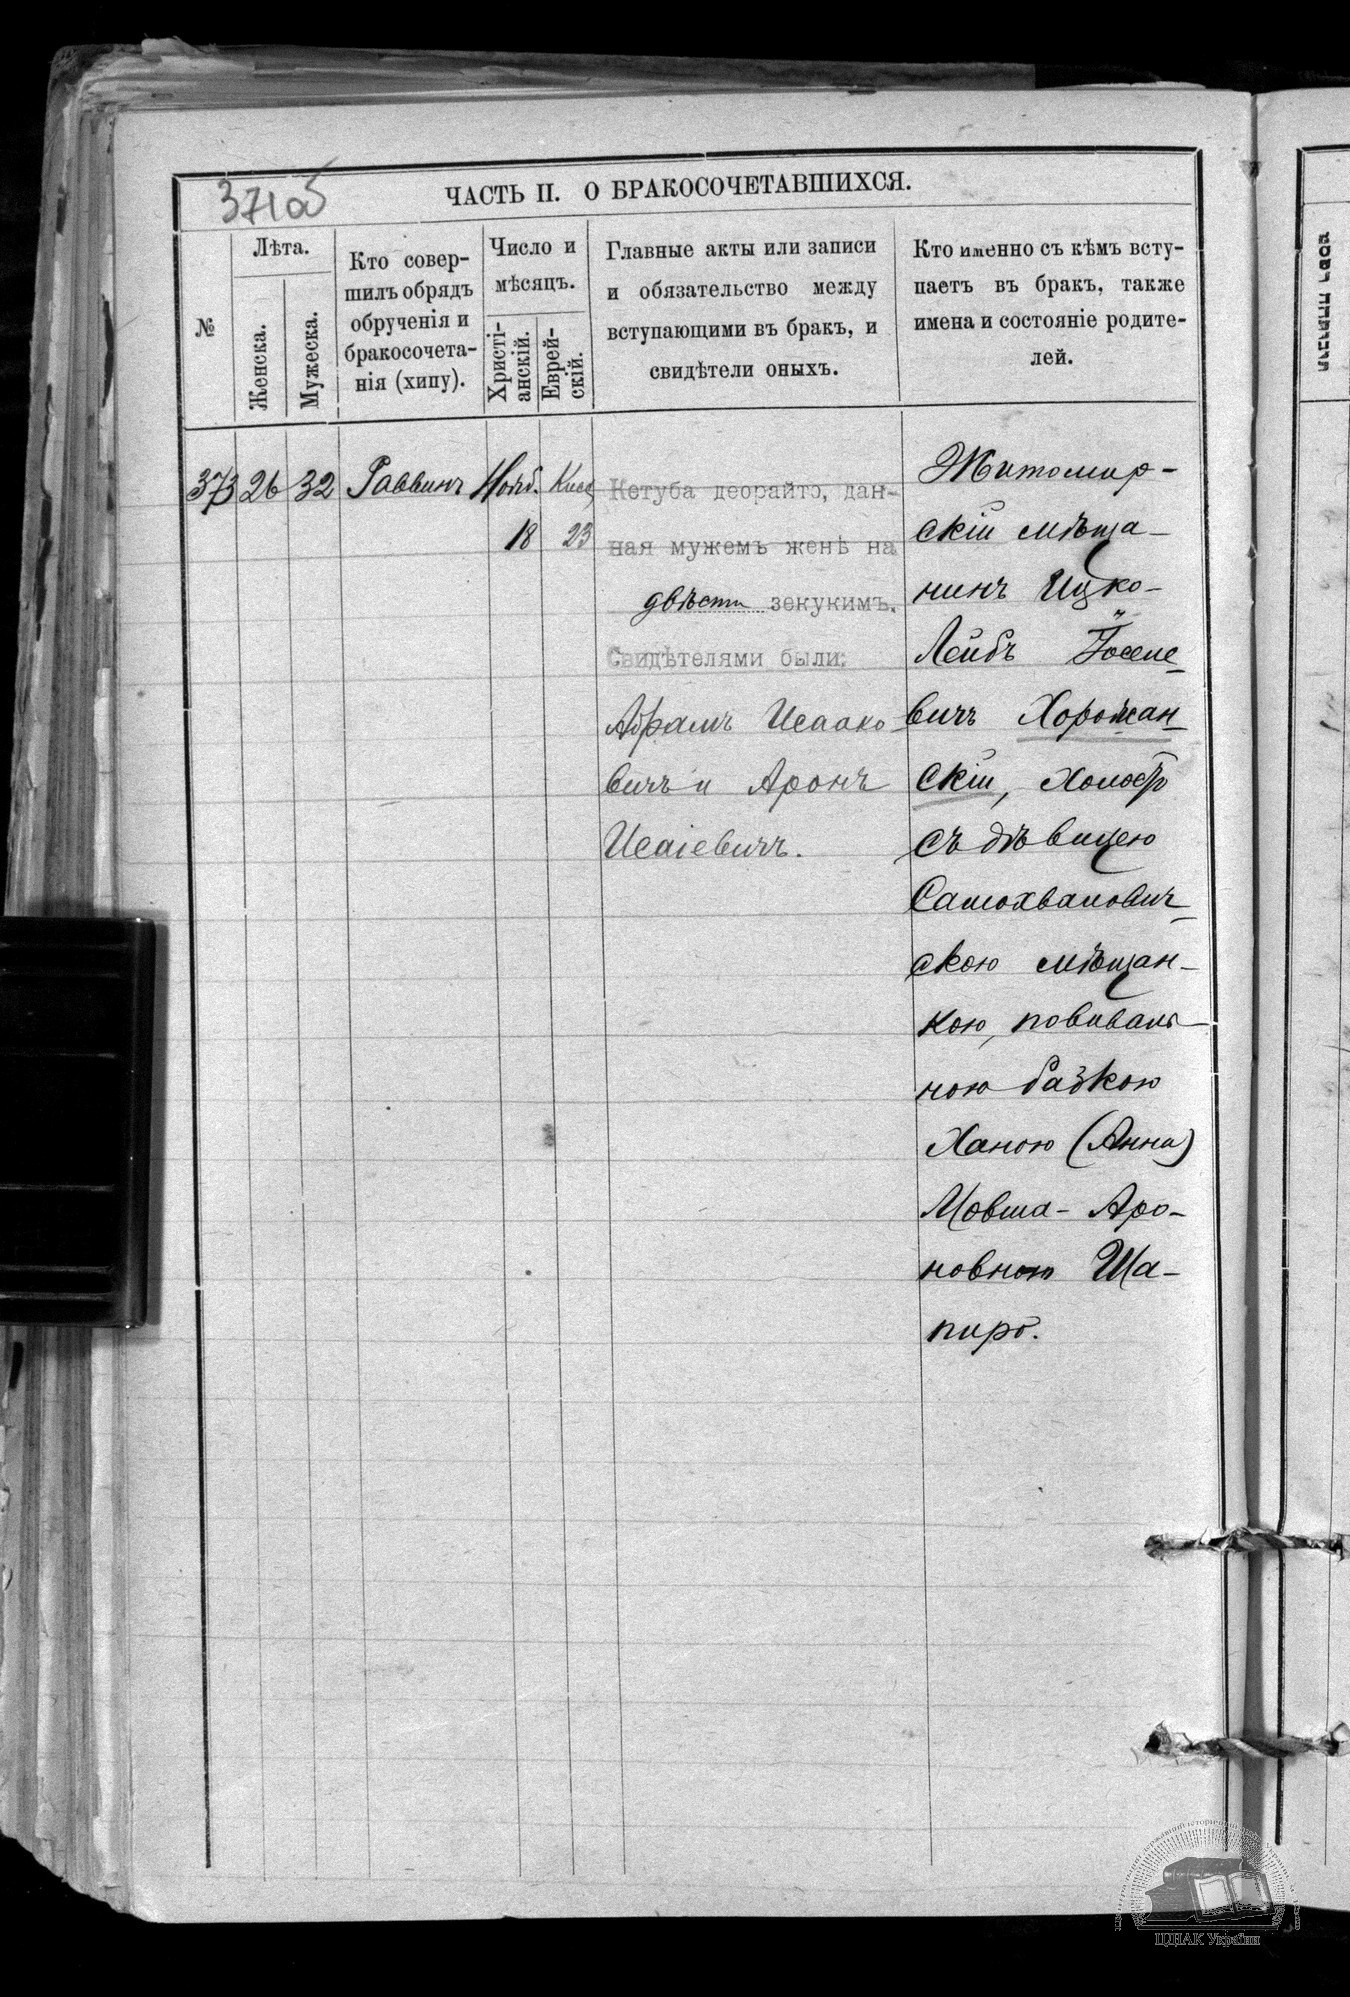 371об
ЧАСТЬ II. О БРАКОСОЧЕТАВШИХСЯ.
№
Лѣта.
Женска.
Мужеска.
Кто совер-
шилъ обрядъ
обрученія и
бракосочета-
нія (хипу).
Число и
мѣсяцъ.
Христі-
анскій.
Еврей-
скій.
Главные акты или записи
и обязательство между
вступающими въ бракъ, и
свидѣтели оныхъ.
Кто именно съ кѣмъ всту-
паетъ въ бракъ, также
имена и состояніе родите-
лей.
373 26 32 Раввинъ Нояб. Кисл
18 23
Кетуба деорайтэ, дан-
ная мужемъ женѣ на
двѣсти зекукимъ.
Свидѣтелями были:
Абрамъ Исаако-
вичъ и Аронъ
Исаіевичъ.
Житомир-
скій мѣща-
нинъ Ицко-
Лейбъ Іоселе-
вичъ Хорожан-
скій, холостъ
съ дѣвицею
Самохвалович-
скою мѣщан-
кою, повиваль-
ною бабкою
Ханою (Анна)
Мовша-Аро-
новною Ша-
пиро.
ЦДІАК України